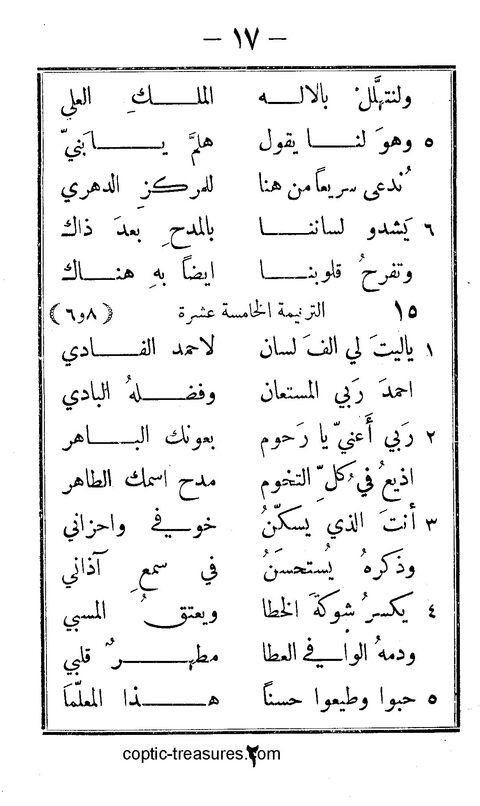 — ١٧ —
ولنتهلَّلْ بالاله الملك العلي
٥ وهوَ لنا يقول هلمَّ يابنيّ
نُدعى سريعاً من هنا للمركزِ الدهري
٦ يَشدو لساننا بالمدحِ بعدَ ذاك
وتفرحُ قلوبنا ايضاً بهِ هناك
١٥ الترنيمة الخامسة عشرة (٨و٦)
١ ياليتَ لي الفَ لسان لاحمد الفادي
احمدَ رَبي المستعان وفضلهُ البادي
٢ رَبي أَعنيّ يا رَحوم بعونك الباهر
اذيعُ في كلِّ التخوم مدحَ اسمك الطاهر
٣ أنتَ الذي يسكّنُ خوفي واحزاني
وذكرهُ يُستحسَنُ في سمعِ آذاني
٤ يكسرُ شوكةَ الخطا ويعتقُ المسبي
ودمهُ الوافي العطا مطهرٌ قلبي
٥ حبوا وطيعوا حسناً هذا المعلّما
٢
coptic-treasures.com